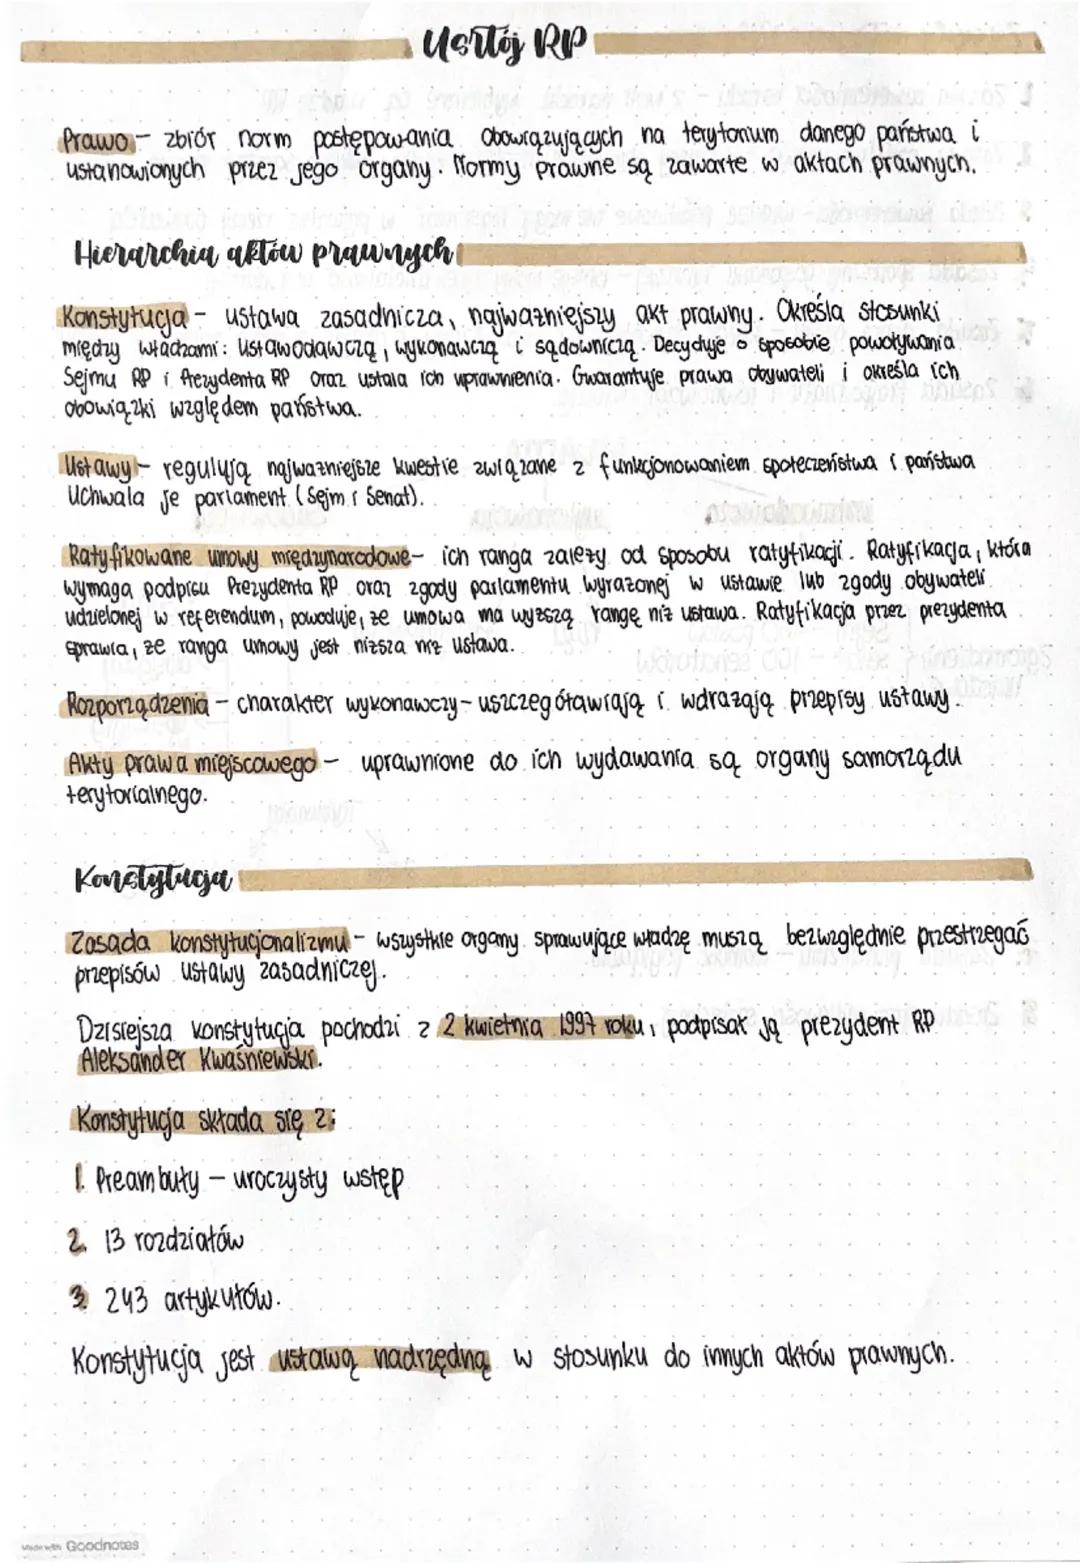 Usrtój RP
Prawo - zbiór norm postępowania obowiązujących na terytorium danego państwa i
ustanowionych przez jego organy. Normy prawne są zawarte w aktach prawnych.
Hierarchia aktów prawnych
Konstytucja - ustawa zasadnicza, najważniejszy akt prawny. Określa stosunki
między władzami: ustawodawczą, wykonawczą i sądowniczą. Decyduje o sposobie powoływania
Sejmu RP i Prezydenta RP oraz ustala ich uprawnienia. Gwarantuje prawa obywateli i określa ich
obowiązki względem państwa.
Ustawy - regulują najważniejsze kwestie związane z funkcjonowaniem społeczeństwa i państwa
Uchwala je parlament (Sejm i Senat).
Ratyfikowane umowy międzynarodowe - ich ranga zależy od sposobu ratyfikacji. Ratyfikacja, która
wymaga podpisu Prezydenta RP oraz zgody parlamentu wyrażonej w ustawie lub zgody obywateli
udzielonej w referendum, powoduje, że umowa ma wyższą rangę niż ustawa. Ratyfikacja przez prezydenta
sprawia, że ranga umowy jest niższa niż ustawa.
Rozporządzenia - charakter wykonawczy - uszczegóławiają i wdrażają przepisy ustawy.
Akty prawa miejscowego - uprawnione do ich wydawania są organy samorządu
terytorialnego.
Konstytucja
Zasada konstytucjonalizmu - wszystkie organy sprawujące władzę muszą bezwzględnie przestrzegać
przepisów ustawy zasadniczej.
Dzisiejsza konstytucja pochodzi z 2 kwietnia 1997 roku, podpisał ją prezydent RP
Aleksander Kwaśniewski.
Konstytucja składa się z:
1. Preambuły - uroczysty wstęp
2. 13 rozdziałów
3. 243 artykułów.
Konstytucja jest ustawą nadrzędną w stosunku do innych aktów prawnych.
Made with Goodnotes